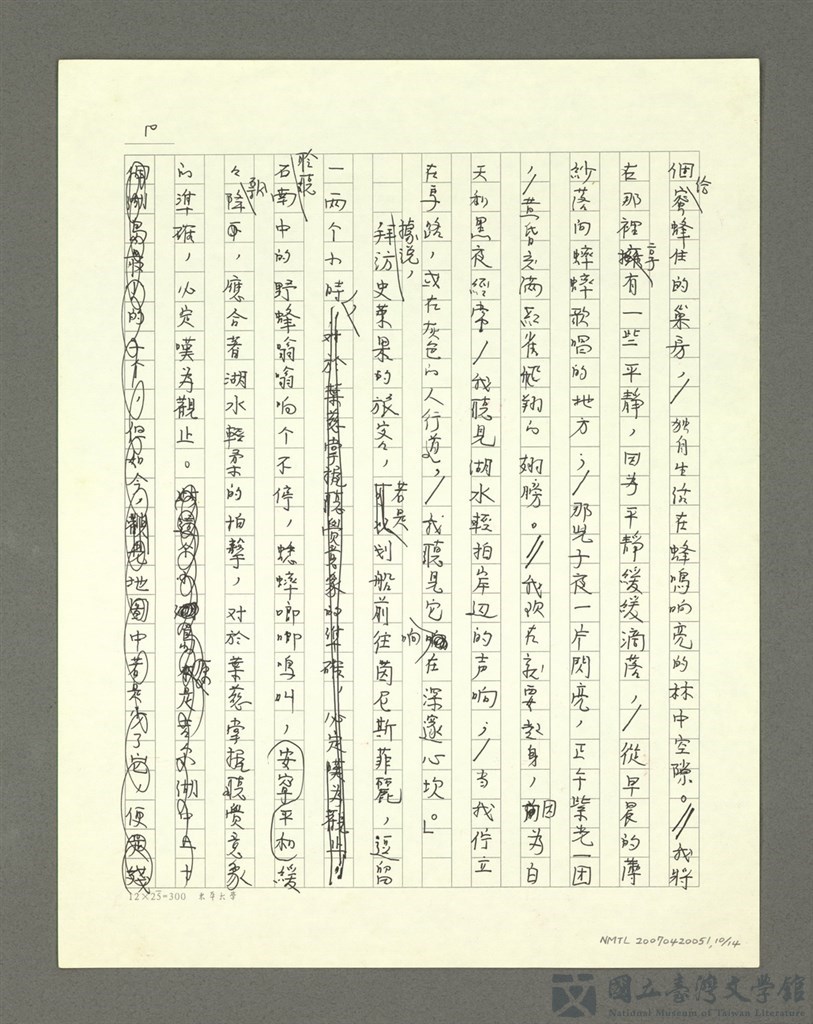 10
個蜜蜂住的巢房，/獨自生活在蜂鳴响亮的林中空隙。//我將
給
在那裡擁有一些平靜，因為平靜緩緩滴落，/從早晨的薄
享
紗落向蟋蟀歌唱的地方；/那兒子夜一片閃亮，正午紫光一團
，/黃昏充滿紅雀飛翔的翅膀。//我現在就要起身，因為白
天和黑夜經常/我聽見湖水輕拍岸边的声响；/当我佇立
在享路，或在灰色的人行道，/我聽見它响在深邃心坎。」
據說，
拜訪史萊果的旅客，若是划船前往茵尼斯菲麗，逗留
一兩个小時，对於葉慈掌握聽覺意象的準確，必定嘆為觀止。
聆聽
石南中的野蜂嗡嗡响个不停，蟋蟀唧唧鳴叫，安寧平和緩
々降下，應合著湖水輕柔的拍擊，对於葉慈掌握聽覺意象
的準確，必定嘆為觀止。
個湖島最小的 个，但如今，地圖中若是少了它，便
12×25=300 東華大學
NMTL 20070420051,10/14
國立臺灣文學館
National Museum of Taiwan Literature